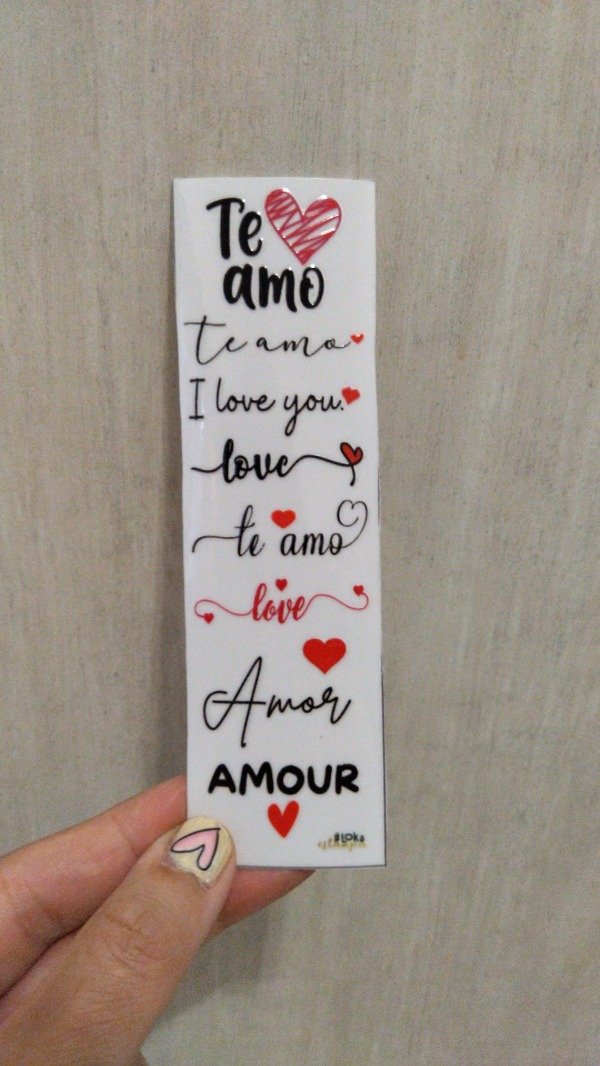 Te
amo
te amo
I love you.
love
te amo
love
Amor
AMOUR
#Loka